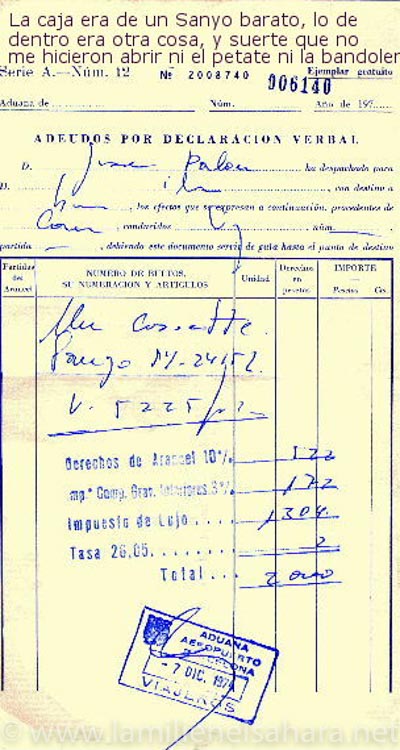 La caja era de un Sanyo barato, lo de
dentro era otra cosa, y suerte que no
me hicieron abrir ni el petate ni la bandoler
Serie A.—Núm. 12 Nº 2008740 006140 Ejemplar gratuito
Aduana de Núm. Año de 197
ADEUDOS POR DECLARACION VERBAL
D. ha despachado para
D. , con destino a
, los efectos que se expresan a continuación, procedentes de
, conducidos núm.
partida , debiendo este documento servir de guía hasta el punto de destino
Partidas del Arancel
NUMERO DE BULTOS, SU NUMERACION Y ARTICULOS
Unidad
Derechos en pesetas
IMPORTE
Pesetas Cts.
Un Cassette
Sanyo M-2415L
V. 5225
Derechos de Arancel 10% 522
Imp.º Comp. Grav. Interiores 3% 172
Impuesto de Lujo . . . . 1304
Tasa 26,05 . . . . . . . . 2
Total . . . 2000
ADUANA
AEROPUERTO
BARCELONA
- 7 DIC. 1974
VIAJEROS
© www.lamilienelsahara.net